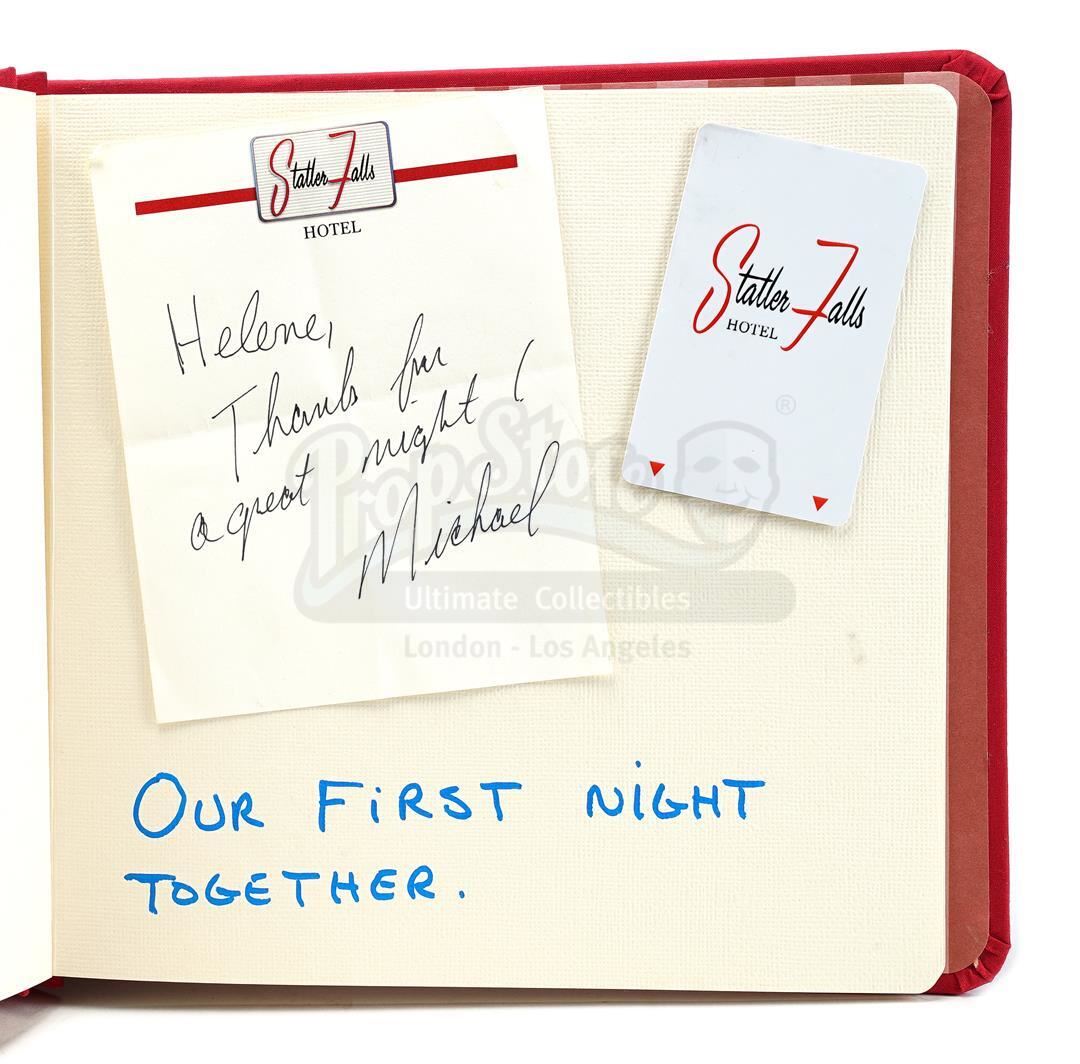 Statler Falls
HOTEL
Helene,
Thanks for
a great night!
Michael
Statler Falls
HOTEL
®
PropStore
Ultimate Collectibles
London - Los Angeles
OUR FiRST NiGHT
TOGETHER.